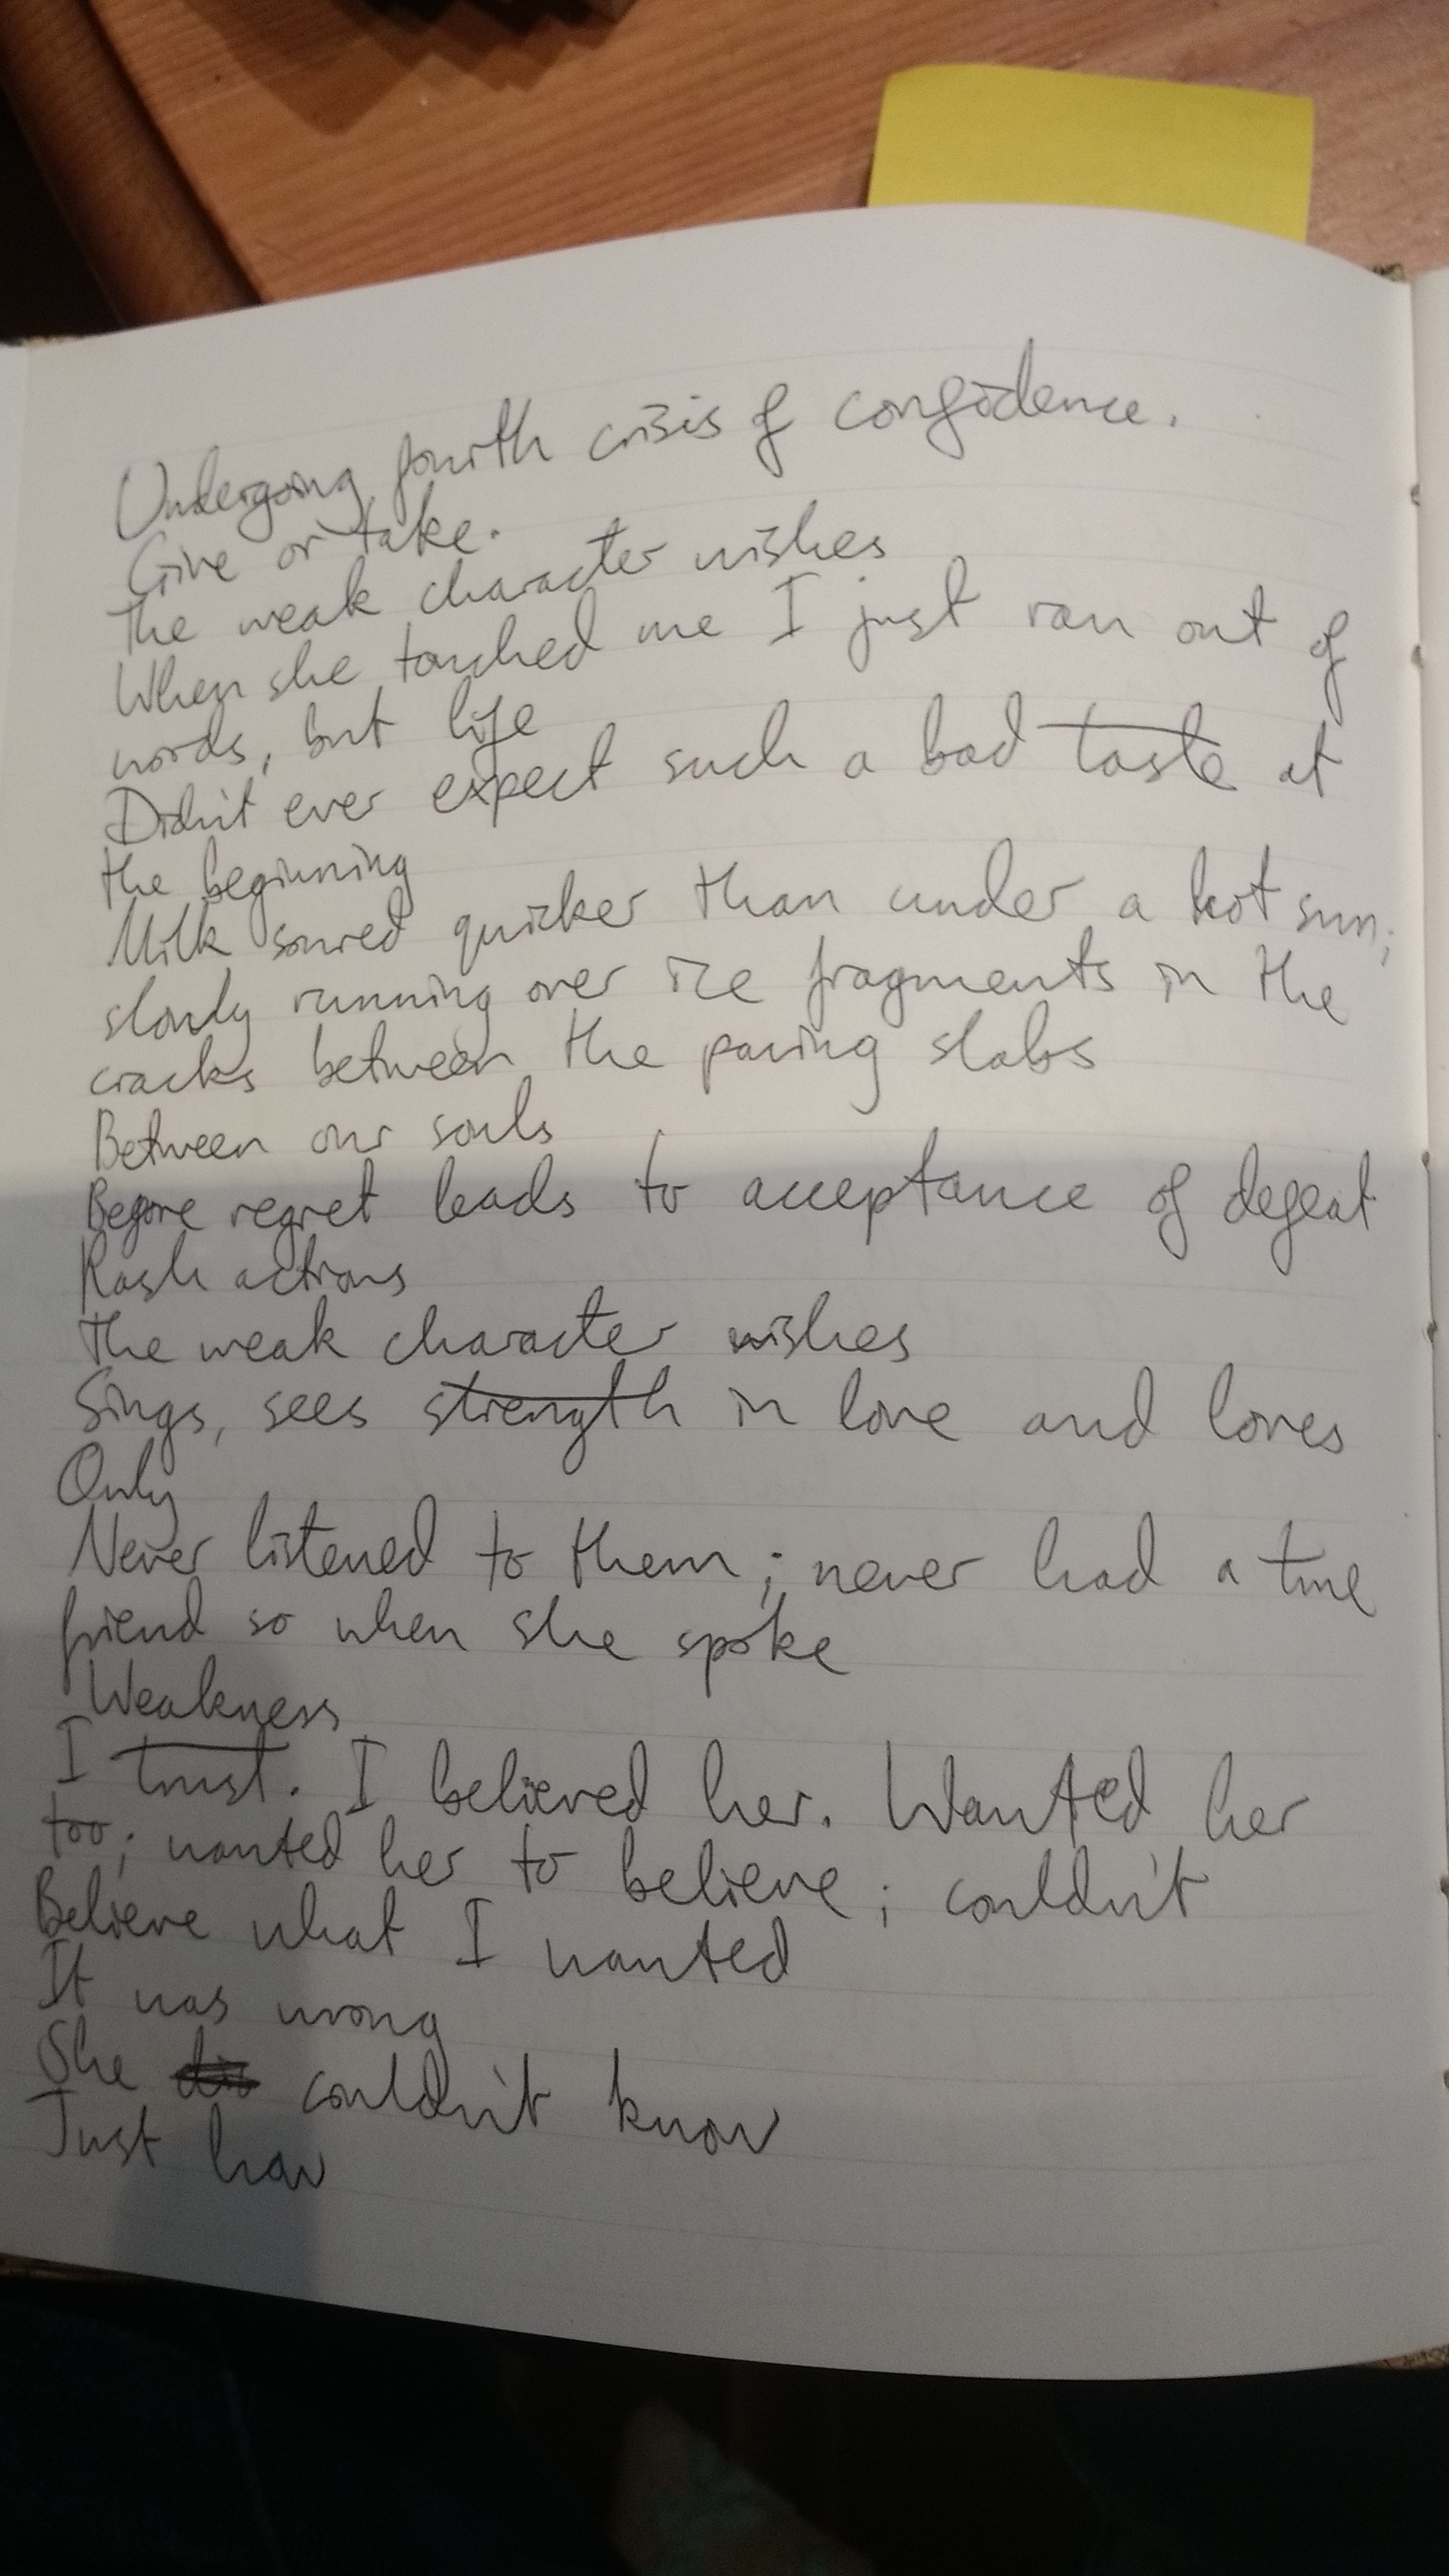 Undergoing fourth crisis of confidence.
Give or take.
The weak character wishes
When she touched me I just ran out of
words, but life
Didn't ever expect such a bad taste at
the beginning
Milk soured quicker than under a hot sun;
slowly running over ice fragments in the
cracks between the paving slabs
Between our souls
Before regret leads to acceptance of defeat
Rash actions
The weak character wishes
Sings, sees strength in love and loves
Only
Never listened to them; never had a true
friend so when she spoke
Weakness
I trust. I believed her. Wanted her
too; wanted her to believe; couldn't
Believe what I wanted
It was wrong
She couldn't know
Just how